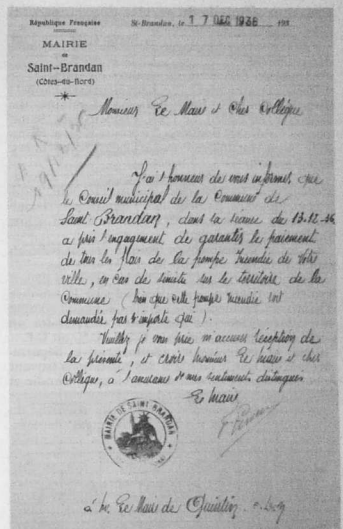 République Française
St-Brandan, le 17 DEC 1936 193
MAIRIE
de
Saint-Brandan
(Côtes-du-Nord)
Monsieur Le Maire et Cher Collègue
J'ai l'honneur de vous informer que
le Conseil municipal de la Commune de
Saint Brandan, dans sa séance du 13.12.36
a pris l'engagement de garantir le paiement
de tous les frais de la pompe Incendie de Votre
ville, en cas de sinistre sur le territoire de la
Commune (bien que cette pompe Incendie soit
demandée par n'importe qui).
Veuillez je vous prie m'accuser réception de
la présente, et croire Monsieur Le Maire et cher
Collègue, à l'assurance de mes sentiments distingués
Le Maire
MAIRIE DE SAINT BRANDAN
à Mr Le Maire de Quintin